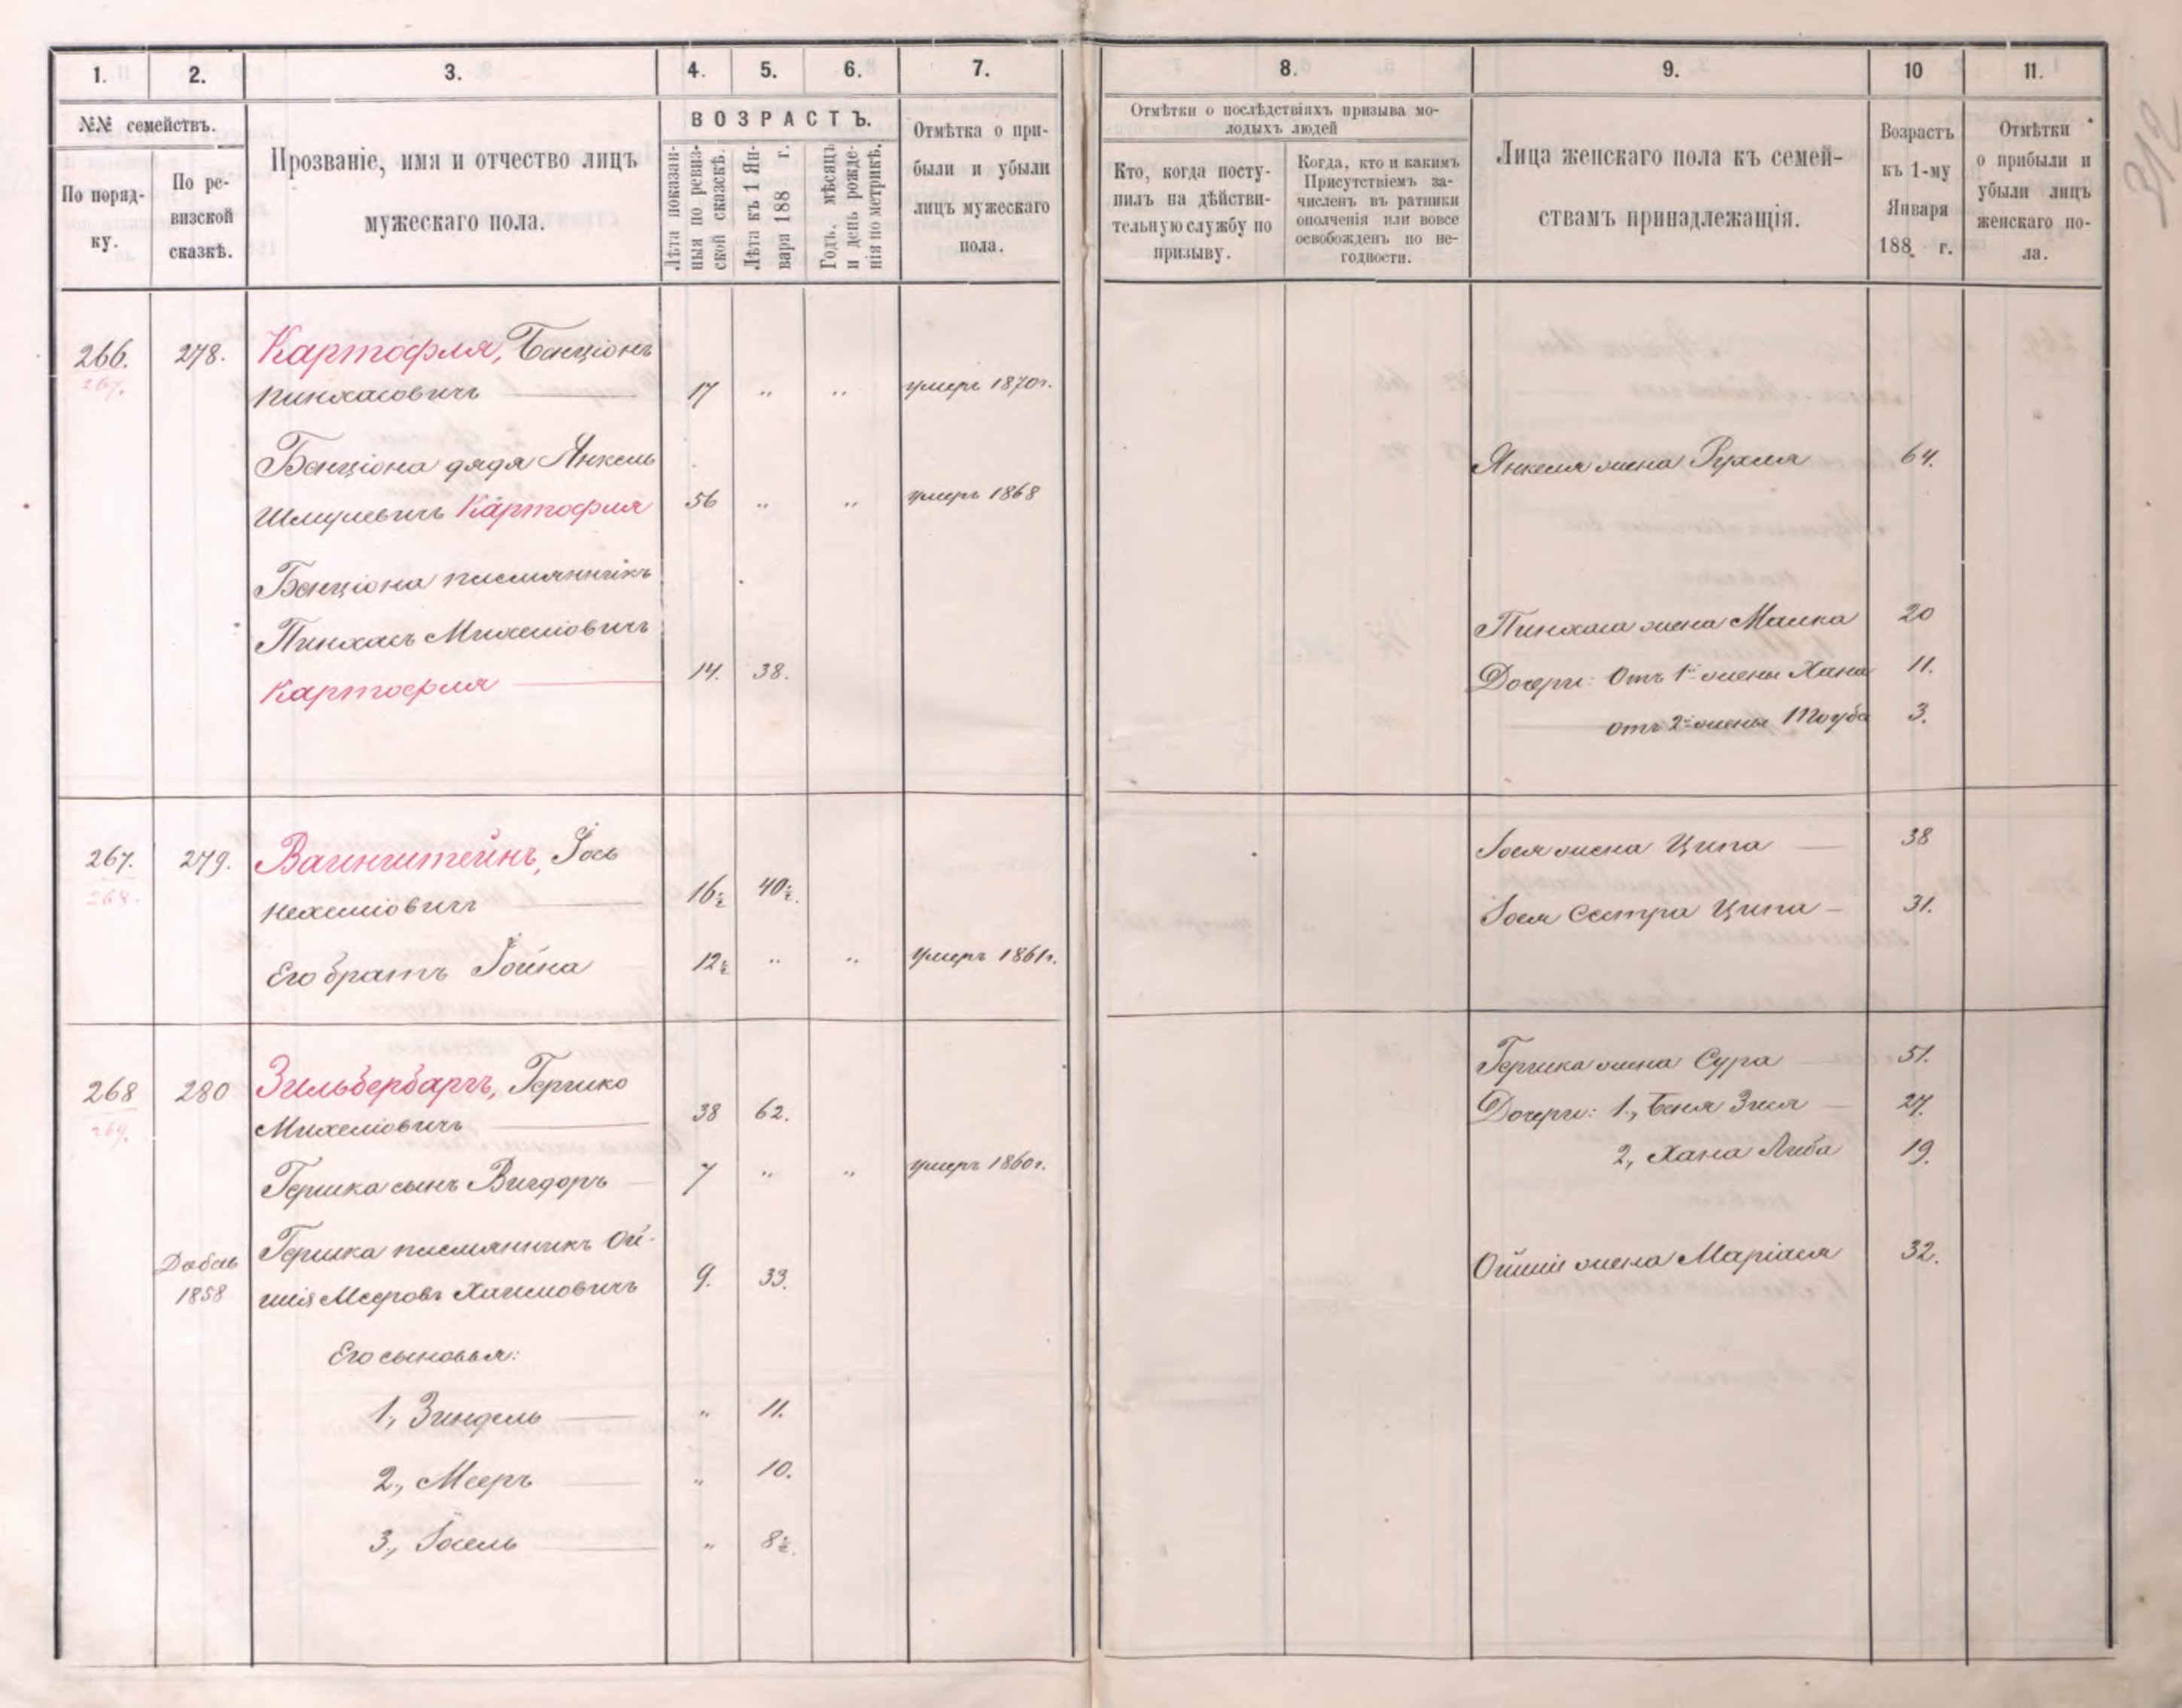 1.
2.
3.
4.
5.
6.
7.
8.
9.
10
11.
№№ семействъ.
По поряд-
ку.
По ре-
визской
сказкѣ.
Прозваніе, имя и отчество лицъ
мужескаго пола.
ВОЗРАСТЪ.
Лѣта показан-
ныя по ревиз-
ской сказкѣ.
Лѣта къ 1 Ян-
варя 188 г.
Годъ, мѣсяцъ
и день рожде-
нія по метрикѣ.
Отмѣтка о при-
были и убыли
лицъ мужескаго
пола.
Отмѣтки о послѣдствіяхъ призыва мо-
лодыхъ людей
Кто, когда посту-
пилъ на дѣйстви-
тельную службу по
призыву.
Когда, кто и какимъ
Присутствіемъ за-
численъ въ ратники
ополченія или вовсе
освобожденъ по не-
годности.
Лица женскаго пола къ семей-
ствамъ принадлежащія.
Возрастъ
къ 1-му
Января
188 г.
Отмѣтки
о прибыли и
убыли лицъ
женскаго по-
ла.
266. 278. Картофля, Бенціонъ
267. Пинхасовичъ 17 " " умеръ 1870 г.
Бенціона дядя Янкель Янкеля жена Рухля 64.
Шмулевичъ Картофля 56 " " умеръ 1868
Бенціона племянникъ
Пинхасъ Михелiовичъ Пинхаса жена Малка 20
Картофля 14. 38. Дочери: Отъ 1й жены Хана 11.
отъ 2й жены Тоуба 3.
267. 279. Вайнштейнъ, Іось Іося жена Ципа 38
268. Нехемiовичъ 16½ 40½. Іося сестра Ципа 31.
Его братъ Іойна 12½ " " умеръ 1861 г.
Гершка жена Сура 51.
268 280 Зильбербаргъ, Гершко
269. Михелiовичъ 38 62. Дочери: 1, Беня Зися 27.
2, Хана Либа 19.
Гершка сынъ Вигдоръ 7 " " умеръ 1860 г.
Добав Гершка племянникъ Ой- Ойшiи жена Маріася 32.
1858 шiя Мееровъ Хаимовичъ 9. 33.
Его сыновья:
1, Зиндель " 11.
2, Мееръ " 10.
3, Іосель " 8½.